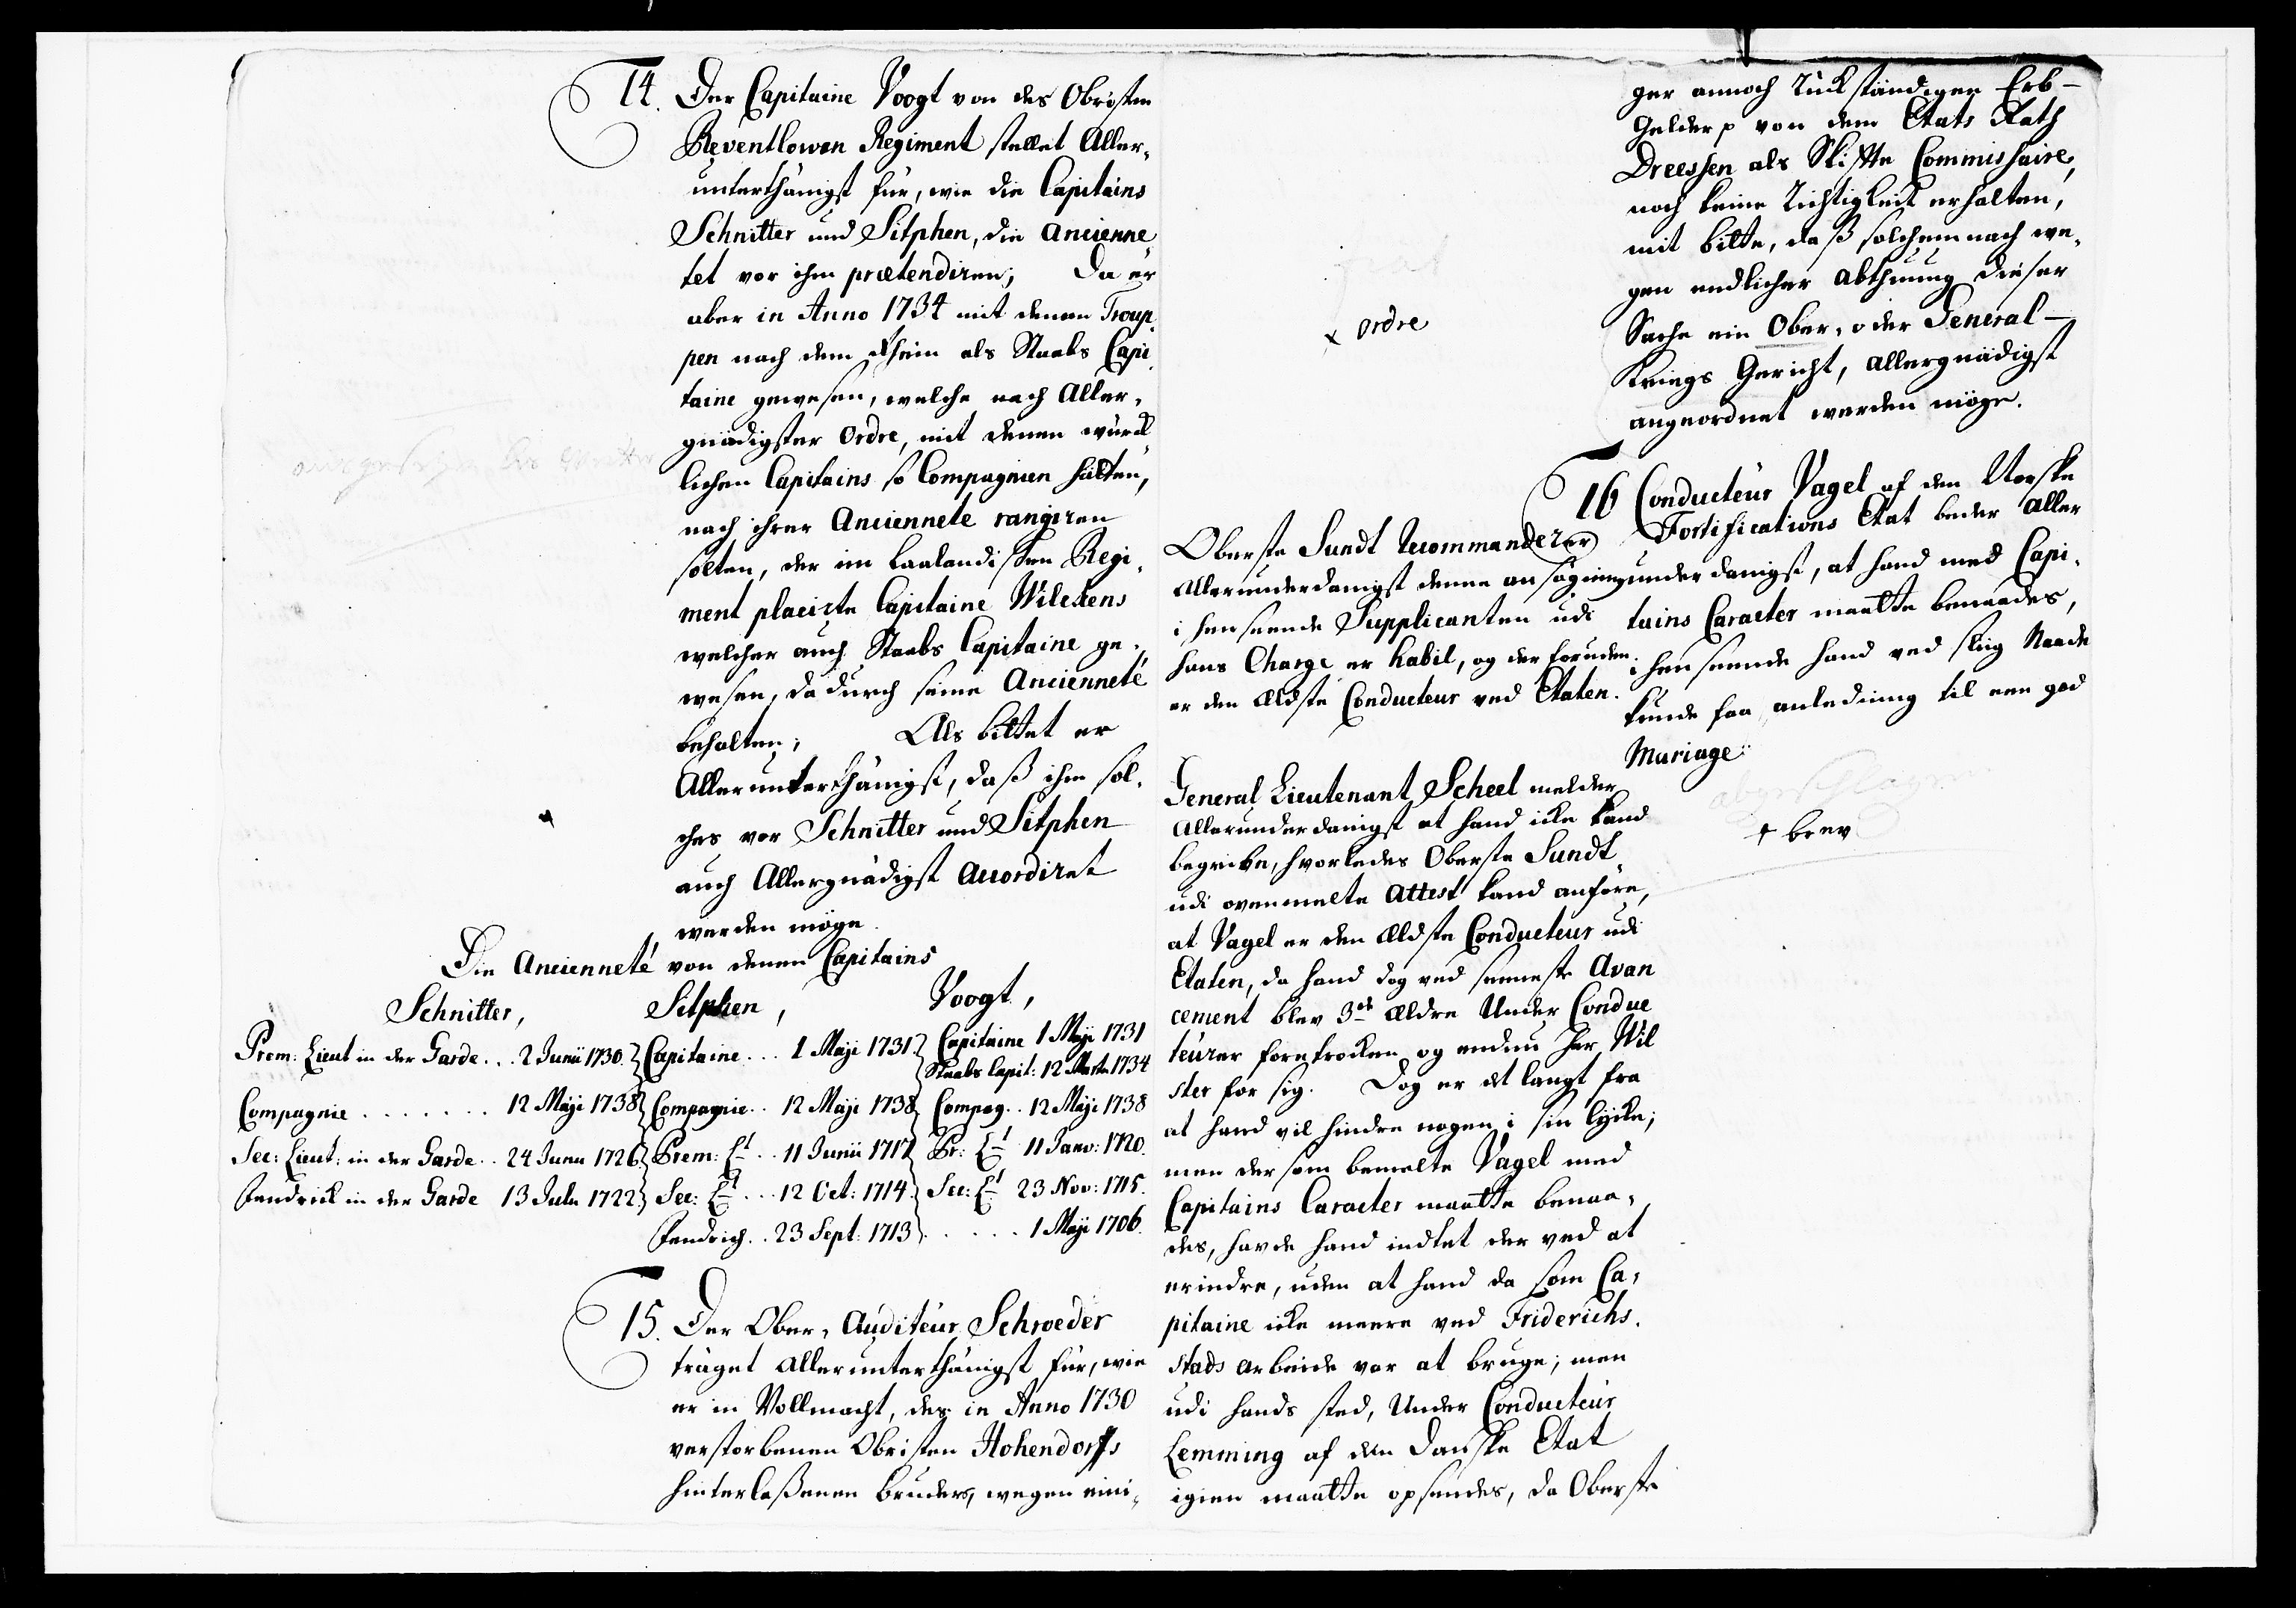 14. Der Capitaine Voogt von des Obristen
Reventlowen Regiment stellet Aller-
unterthänigst für, wie die Capitains
Schnitter und Sitphen, die Ancienne-
tet vor ihm prætendiren; Da er
aber in Anno 1734 mit denen Troup-
pen nach dem Rhein als Staabs Capi-
taine gewesen, welche nach Aller-
gnädigster Ordre, mit denen würck-
lichen Capitains so Compagnien hätten,
nach ihrer Anciennete rangiren
solten, der im Laalandischen Regi-
ment placirte Capitaine Wilckens
welcher auch Staabs Capitaine ge-
wesen, dadurch seine Ancienneté
behalten; Als bittet er
Allerunterthänigst, daß ihm sol-
ches vor Schnitter und Sitphen
auch Allergnädigst accordiret
werden möge.
Die Ancienneté von denen Capitains
Schnitter, Sitphen, Voogt,
Prem: Lieut in der Garde... 2 Junii 1730. Capitaine... 1 Maji 1731. Capitaine 1 Maji 1731
Staabs Capit: 12 Martii 1734
Compagnie....... 12 Maji 1738 Compagnie.. 12 Maji 1738 Compag.. 12 Maji 1738
Sec: Lieut: in der Garde.. 24 Junii 1726. Prem: Lt.. 11 Junii 1717 Pr: Lt 11 Janv: 1720.
Fendrich in der Garde 13 Julii 1722. Sec: Lt... 12 Oct: 1714. Sec: Lt 23 Nov: 1715.
Fendrich.. 23 Sept: 1713. ..... 1 Maji 1706.
15. Der Ober-Auditeur Schroeder
träget Allerunterthänigst für, wie
er in Vollmacht, des in Anno 1730
verstorbenen Obristen Hohendorffs
hinterlaßenen Bruders, wegen eini-
ger annoch rückständigen Erb-
Gelder p von dem Etats Rath
Dreessen als Skiffte Commissaire,
noch keine Richtigkeit erhalten,
mit bitte, daß solchemnach we-
gen endlicher Abthuung dieser
Sache ein Ober- oder General-
Kriegs Gericht, Allergnädigst
angeordnet werden möge.
x Ordre
16 Conducteur Vagel af den Norske
Fortifications Etat beder Aller
underdanigst, at hand med Capi-
tains Caracter maatte benaades,
i henseende hand ved slig Naade
kunde faa anledning til een god
Mariage.
+ brev
Oberste Sundt recommanderer
Allerunderdanigst denne ansøgning
i henseende Supplicanten udi
hans Charge er habil, og der foruden
er den Ældste Conducteur ved Etaten.
General Lieutenant Scheel melder
Allerunderdanigst at hand icke kand
begribe, hvorledes Oberste Sundt
udi ovenmelte Attest kand anføre,
at Vagel er den Ældste Conducteur udi
Etaten, da hand dog ved seeneste Avan
cement blev 3de Ældre Under Conduc
teurer foretrocken og endnu har Wil
ster for sig. Dog er det langt fra
at hand vil hindre nogen i sin lycke;
men dersom bemelte Vagel med
Capitains Caracter maatte benaa-
des, havde hand indtet der ved at
erindre, uden at hand da som Ca-
pitaine icke meere ved Friderichs-
stads Arbeide var at bruge; men
udi hands sted, Under Conducteur
Lemming af den Danske Etat
igien maatte opsendes, da Oberste